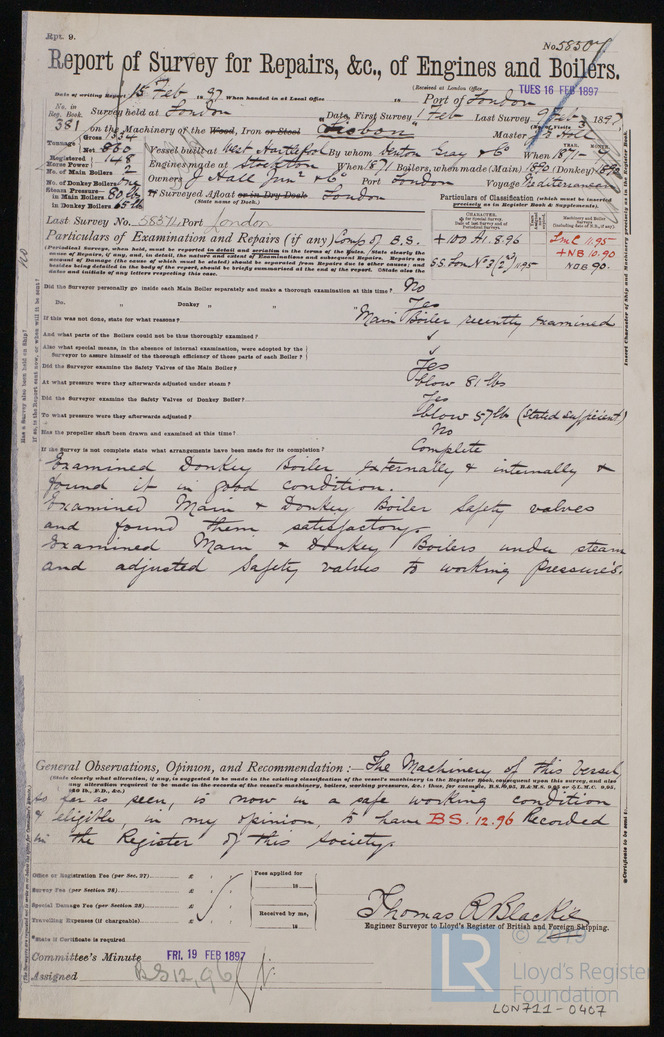 Rpt. 9.
No. 58507
Report of Survey for Repairs, &c., of Engines and Boilers.
Date of writing Report 15 Feb 1897 When handed in at Local Office 18 Port of London
(Received at London Office TUES 16 FEB 1897
No. in Reg. Book. Survey held at London Date, First Survey 1 Feb Last Survey 9 Feb 1897
381 on the Machinery of the Wood, Iron or Steel Lisbon Master
Tonnage Gross 1334
Net 860 Vessel built at West Hartlepool By whom Denton Gray & Co When 1871
Registered Horse Power 148 Engines made at Stockton When 1871 Boilers, when made (Main) 1890 (Donkey) 1890
No. of Main Boilers 2 Owners J Hall Junr & Co Port London Voyage Mediterranean
No. of Donkey Boilers One
Steam Pressure in Main Boilers 80 lbs If Surveyed Afloat or in Dry Dock London
in Donkey Boilers (State name of Dock.)
Particulars of Classification (which must be inserted precisely as in Register Book & Supplements).
Last Survey No. 58371 Port London
Particulars of Examination and Repairs (if any) Comp of B.S.
+100 A1. 8.96
S.S. Lon No 3 (2nd) 11.95
LMC 11.95
+NB 10.90
NDB 90.
Did the Surveyor personally go inside each Main Boiler separately and make a thorough examination at this time? No
Do. " Donkey " " " Yes
If this was not done, state for what reasons? Main Boiler recently examined
And what parts of the Boilers could not be thus thoroughly examined?
Also what special means, in the absence of internal examination, were adopted by the
Surveyor to assure himself of the thorough efficiency of those parts of each Boiler?
Did the Surveyor examine the Safety Valves of the Main Boiler? Yes
At what pressure were they afterwards adjusted under steam? blow 81 lbs
Did the Surveyor examine the Safety Valves of Donkey Boiler? Yes
To what pressure were they afterwards adjusted? blow 57 lb (Stated sufficient)
Has the propeller shaft been drawn and examined at this time? No
If the Survey is not complete state what arrangements have been made for its completion? Complete
Examined Donkey Boiler externally & internally &
found it in good condition.
Examined Main & Donkey Boiler Safety valves
and found them satisfactory.
Examined Main & Donkey Boilers under steam
and adjusted Safety valves to working pressure's.
General Observations, Opinion, and Recommendation:— The Machinery of this Vessel,
so far as seen, is now in a safe working condition
& eligible, in my opinion, to have BS. 12.96 Recorded
in the Register of this Society.
Office or Registration Fee (per Sec. 27) £ Fees applied for
Survey Fee (per Section 28) £ 18
Special Damage Fee (per Section 28) £ Received by me,
Travelling Expenses (if chargeable) £ 18
Thomas R Blackie
Engineer Surveyor to Lloyd's Register of British and Foreign Shipping.
*State if Certificate is required
Committee's Minute FRI. 19 FEB 1897
Assigned BS 12,96
LR © 2019
Lloyd's Register
Foundation
LON711-0407